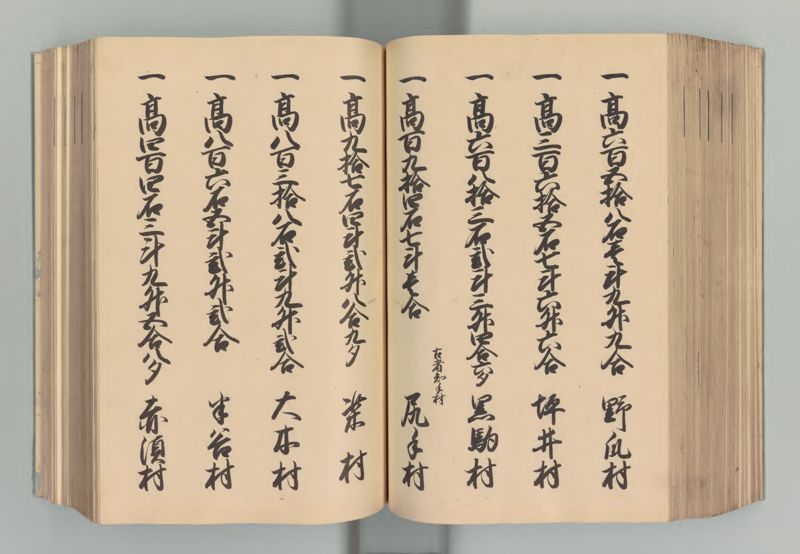 一高六百五拾八石壱斗九升九合 野爪村
一高二百六拾五石七斗六升六合 坪井村
一高六百八拾三石弐斗三升四合六夕 黒駒村
一高百九拾四石七斗壱合 尻手村
古者 村
一高九拾七石四斗弐升八合九夕 栗村
一高八百三拾八石弐斗九升弐合 大木村
一高八百六石五斗弐升弐合 半谷村
一高四百四石三斗九升五合八夕 赤須村